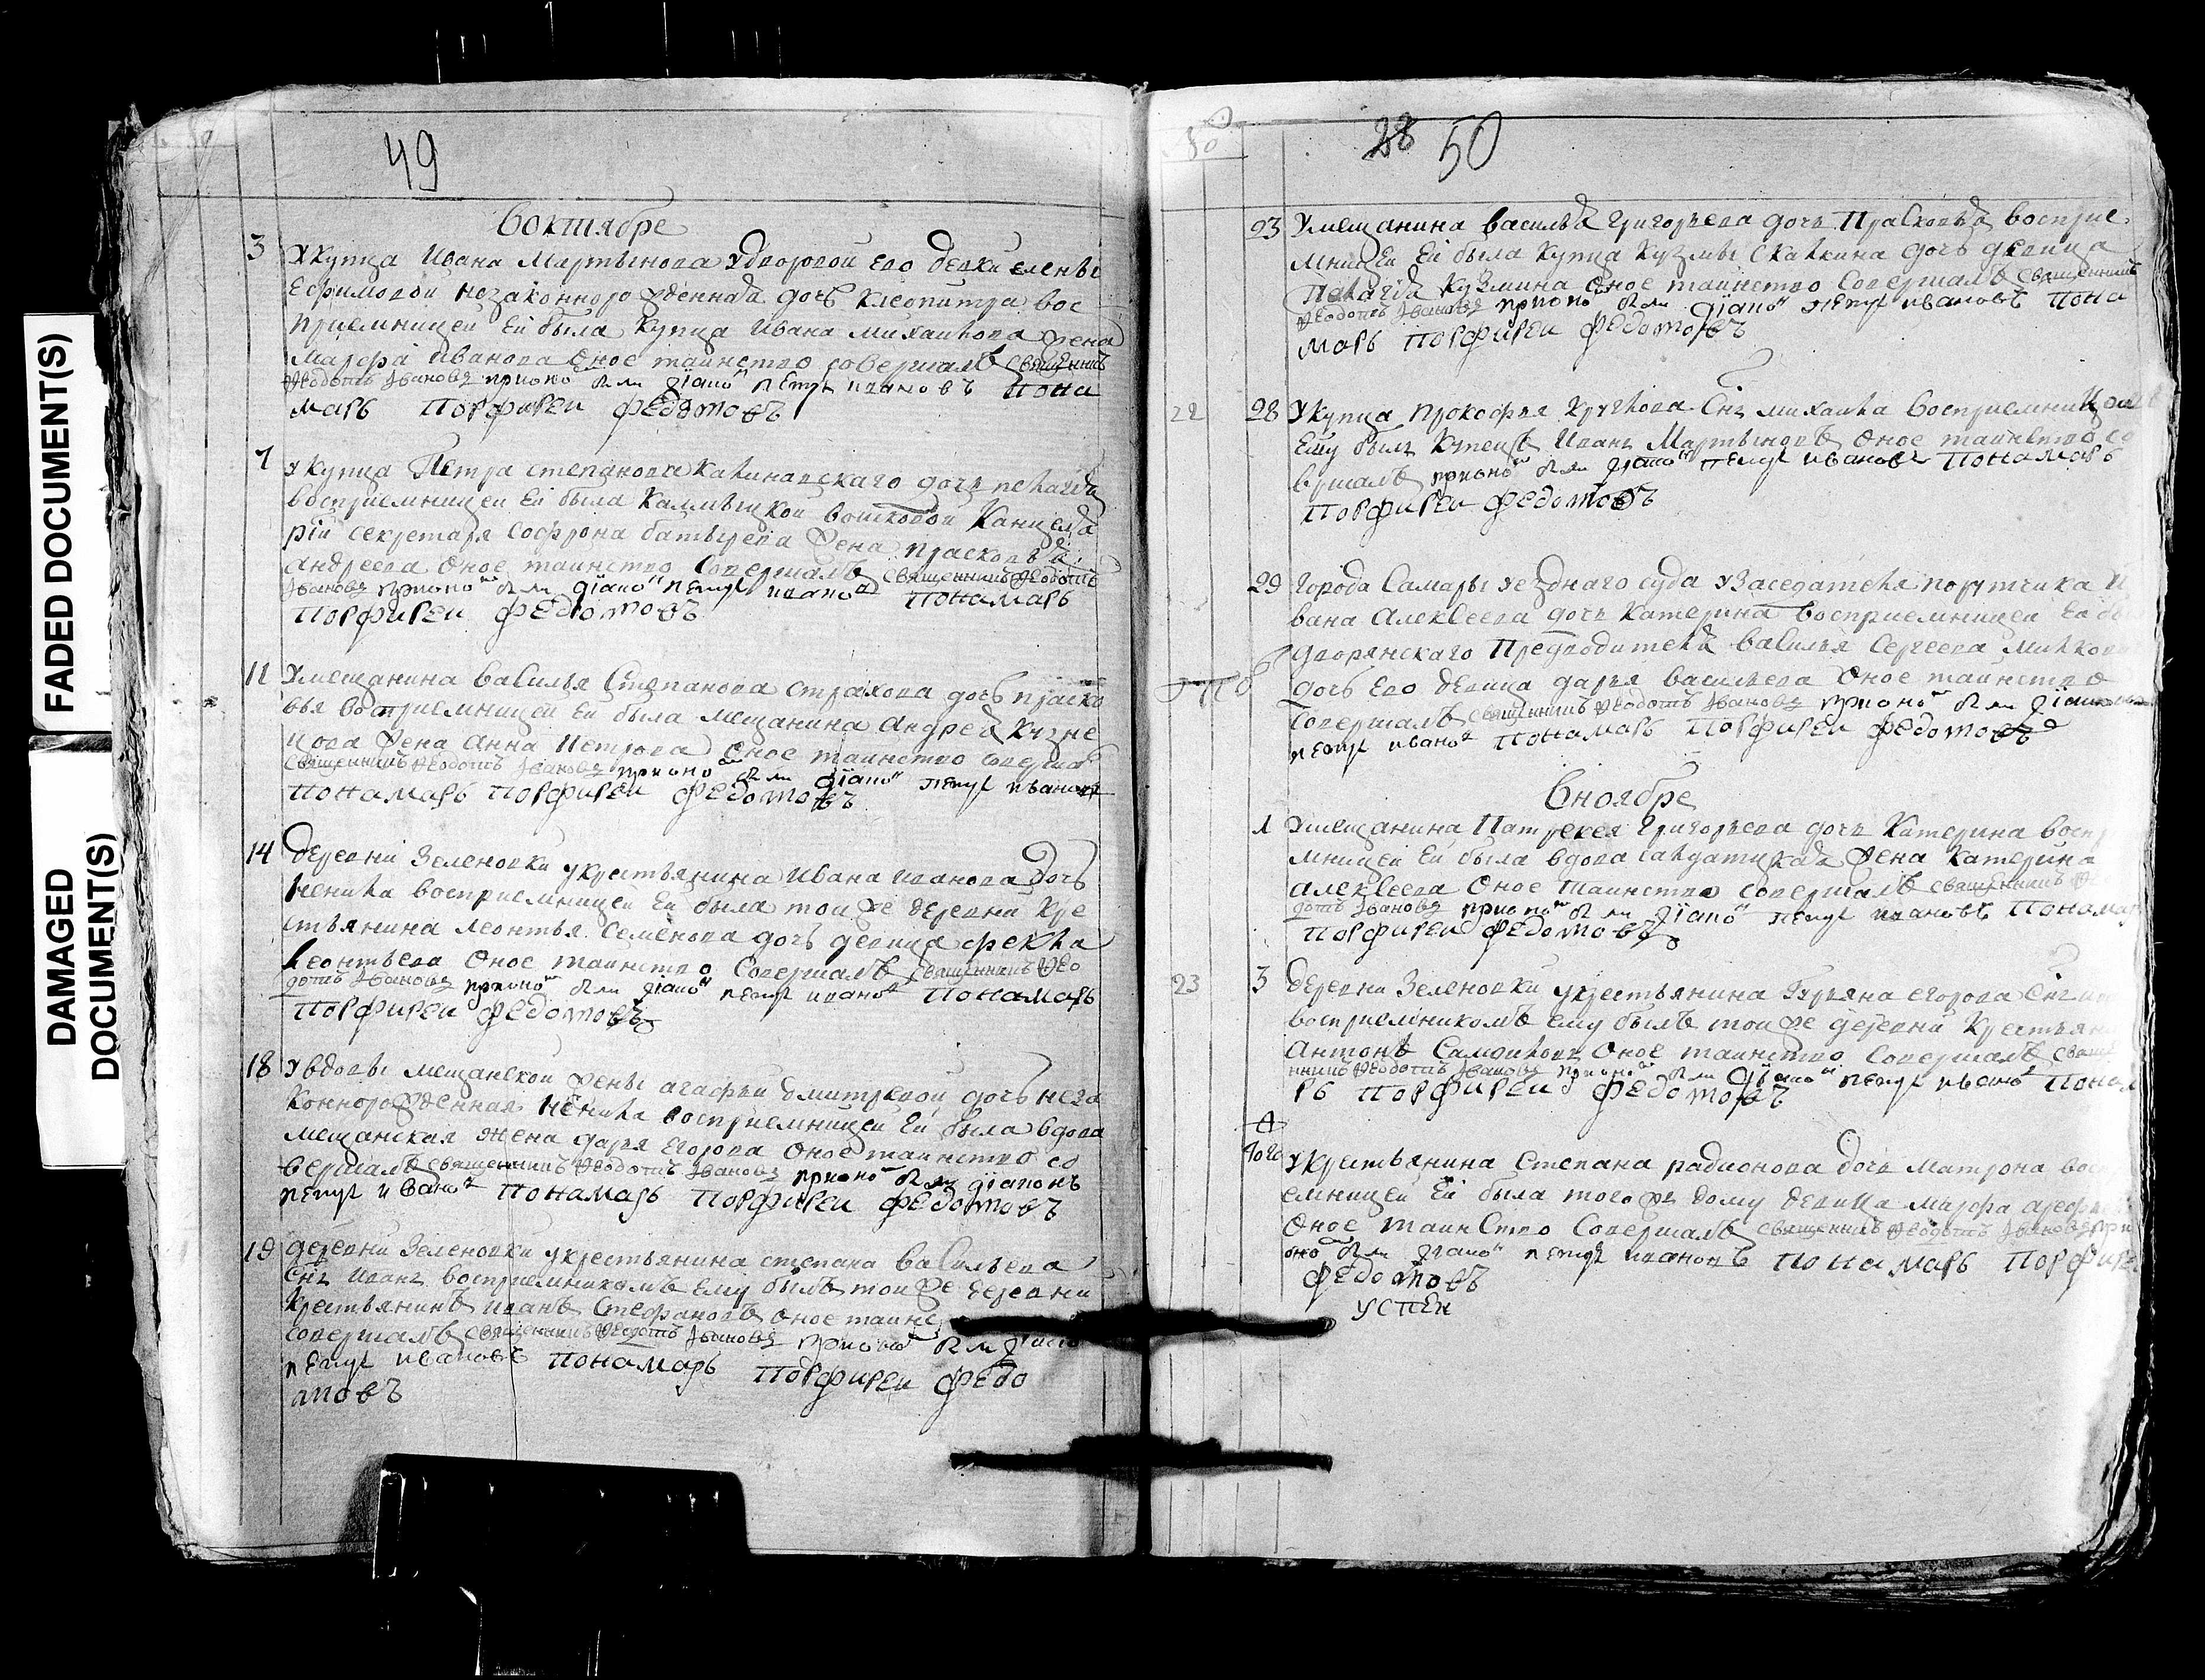 FADED DOCUMENT(S)
DAMAGED
DOCUMENT(S)
49
В октябре
3 У купца Ивана Мартынова удворовой его девки елены
Ефимовой незаконнорожденная дочь Клеопатра вос
приемницеи Ей была Купца Ивана михаилова жена
марфа иванова Оное таинство совершалъ священникъ
Ѳеодотъ Ивановъ при оно был дïако петр ивановъ Пона
марь Порфиреи Федотовъ
7 укупца Петра степанова дочь пелагея
восприемницеи Ей была Калмыцкои воисковои Канцеля
рïи секретаря Софрона батырева жена прасковья
андреева Оное таинство Совершалъ священникъ Ѳеодотъ
Ивановъ при оно был дïако петр ивано Понамарь
Порфиреи Федотовъ
11 Умещанина василья Степанова страхова дочь праско
вья восприемницеи Ей была мещанина Андрея Кузне
цова жена Анна Петрова Оное таинство соверша
священникъ Ѳеодотъ Ивановъ при оно был дïако петр иванов
понамарь Порфиреи Федотовъ
14 деревни Зеленовки укрестьянина Ивана Иванова дочь
ненила восприемницеи Ей была тои же деревни Кре
стьянина леонтья Семенова дочь девица фекла
Леонтьева Оное таинство Совершалъ священникъ Ѳео
дотъ Ивановъ при оно был дïако петр ивано Понамарь
Порфиреи Федотовъ
18 Увдовы мещанской жены агафьи дмитревои дочь неза
коннорожденная ненила восприемницеи Ей была вдова
мещанская жена дарья Егорова Оное таинство со
вершалъ священникъ Ѳеодотъ Ивановъ при оно был дïаконъ
петр ивано понамарь порфиреи Федотовъ
19 деревни Зеленовки укрестьянина степана васильева
Снъ Иванъ восприемникомъ Ему былъ тои же деревни
Крестьянинъ иванъ Стефановъ оное таинс
совершалъ священникъ Ѳеодотъ Ивановъ при оно был дïако
петр ивановъ понамарь Порфиреи Федо
товъ
28 50
23 Умещанина василья Григорьева дочь Прасковья восприе
мницеи Ей была Купца Кузмы дочь девица
Пелагея Кузмина Оное таинство Совершалъ священникъ
Ѳеодотъ Ивановъ при оно был дïако петр ивановъ Пона
марь Порфиреи Федотовъ
22 28 Укупца Прокофья Круглова Снъ михаила восприемником
Ему былъ Купецъ Иванъ Мартыновъ Оное таинство со
вершалъ при оно был дïако петр иванов Понамарь
Порфиреи Федотовъ
29 Города Самары уезднаго суда узаседателя порутчика И
вана Алексеева дочь Катерина восприемницеи Ей бы
дворянскаго Предводителя василья Сергеева
дочь Его девица дарья васильева Оное таинство
Совершалъ священникъ Ѳеодотъ Ивановъ при оно был дïако
петр ивано Понамарь Порфиреи Федотовъ
В ноябре
1 Умещанина Патрекея Григорьева дочь Катерина воспр
мницеи Ей была вдова салдатцкая жена Катерина
алексеева Оное таинство совершалъ священникъ Ѳео
дотъ Ивановъ при оно был дïако петр ивановъ Понамар
Порфиреи Федотовъ
23 3 деревни Зеленовки укрестьянина Гурьяна егорова Снъ
восприемникомъ ему былъ тои же деревни Крестьян
Антонъ Самоиловъ Оное таинство Совершалъ свяще
нникъ Ѳеодотъ Ивановъ при оно был дïако петр ивано Понам
рь Порфиреи Федотовъ
Того
укрестьянина Степана радионова дочь матрона вос
емницеи Ей была того же дому девица марфа
Оное таинство Совершалъ священникъ Ѳеодотъ Ивановъ при
оно был дïако петр ивановъ понамарь Порфире
Федотовъ
успен